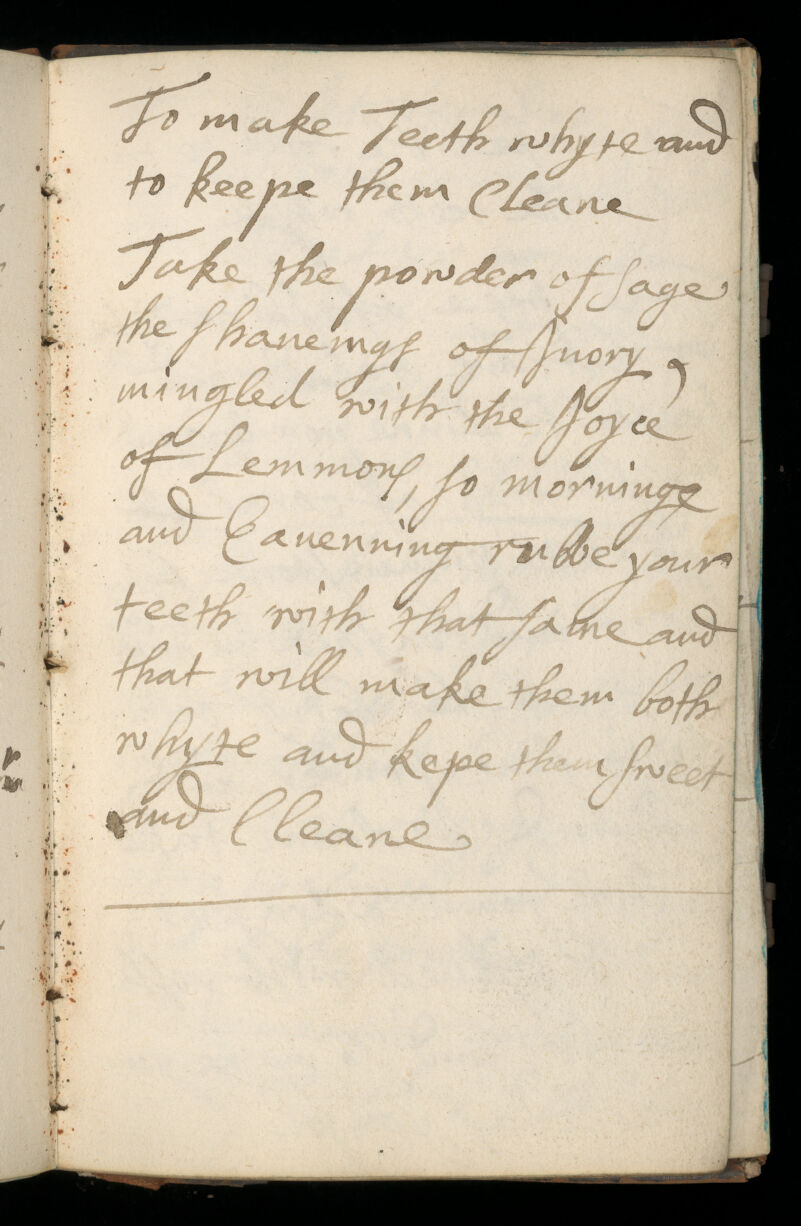 To make Teeth whyte and
to keepe them Cleane
Take the powder of sage
the shauemgs of Juory,
mingled with the Joyce
of Lemmons, so mornings
and Eauenning rubbe your
teeth with that same and
that will make them both
whyte and kepe them sweet
and Cleane